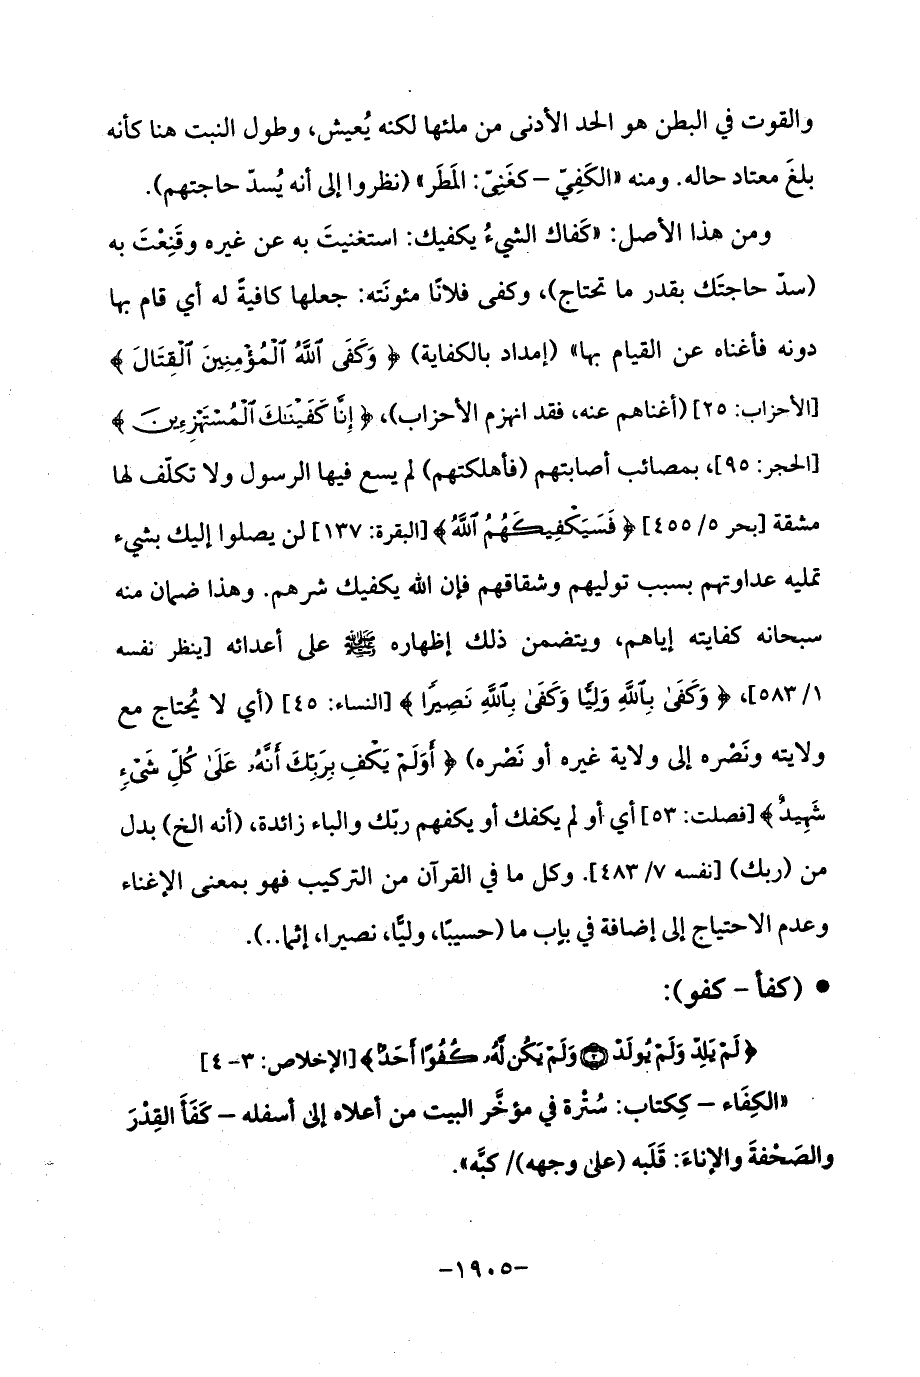 والقوت في البطن هو الحد الأدنى من ملئها لكنه يُعيش، وطول النبت هنا كأنه
بلغَ معتاد حاله. ومنه «الكَفِيّ – كغَنِىّ: المَطَر» (نظروا إلى أنه يُسدّ حاجتهم).
ومن هذا الأصل: «كَفاك الشيءُ يكفيك: استغنيتَ به عن غيره وقَنِعْتَ به
(سدّ حاجتَك بقدر ما تحتاج)، وكفى فلانًا مئونَته: جعلها كافيةً له أي قام بها
دونه فأغناه عن القيام بها» (إمداد بالكفاية) ﴿ وَكَفَى ٱللَّهُ ٱلْمُؤْمِنِينَ ٱلْقِتَالَ ﴾
[الأحزاب: ٢٥] (أغناهم عنه، فقد انهزم الأحزاب)، ﴿ إِنَّا كَفَيْنَـٰكَ ٱلْمُسْتَهْزِءِينَ ﴾
[الحجر: ٩٥]، بمصائب أصابتهم (فأهلكتهم) لم يسع فيها الرسول ولا تكلّف لها
مشقة [بحر ٥/ ٤٥٥] ﴿ فَسَيَكْفِيكَهُمُ ٱللَّهُ ﴾ [البقرة: ١٣٧] لن يصلوا إليك بشيء
تمليه عداوتهم بسبب توليهم وشقاقهم فإن الله يكفيك شرهم. وهذا ضمان منه
سبحانه كفايته إياهم، ويتضمن ذلك إظهاره ﷺ على أعدائه [ينظر نفسه
١/ ٥٨٣]، ﴿ وَكَفَىٰ بِٱللَّهِ وَلِيًّا وَكَفَىٰ بِٱللَّهِ نَصِيرًا ﴾ [النساء: ٤٥] (أي لا يُحتاج مع
ولايته ونَصْره إلى ولاية غيره أو نَصْره) ﴿ أَوَلَمْ يَكْفِ بِرَبِّكَ أَنَّهُۥ عَلَىٰ كُلِّ شَىْءٍ
شَهِيدٌ ﴾ [فصلت: ٥٣] أي أو لم يكفك أو يكفهم ربّك والباء زائدة، (أنه الخ) بدل
من (ربك) [نفسه ٧/ ٤٨٣]. وكل ما في القرآن من التركيب فهو بمعنى الإغناء
وعدم الاحتياج إلى إضافة في باب ما (حسيبًا، وليًّا، نصيرا، إثما..).
• (كفأ – كفو):
﴿ لَمْ يَلِدْ وَلَمْ يُولَدْ ۝٣ وَلَمْ يَكُن لَّهُۥ كُفُوًا أَحَدٌۢ ﴾ [الإخلاص: ٣– ٤]
«الكِفَاء – ككِتاب: سُتْرة في مؤخَّر البيت من أعلاه إلى أسفله – كَفَأَ القِدْرَ
والصَحْفةَ والإناءَ: قَلَبه (على وجهه)/ كبَّه».
–١٩٠٥–